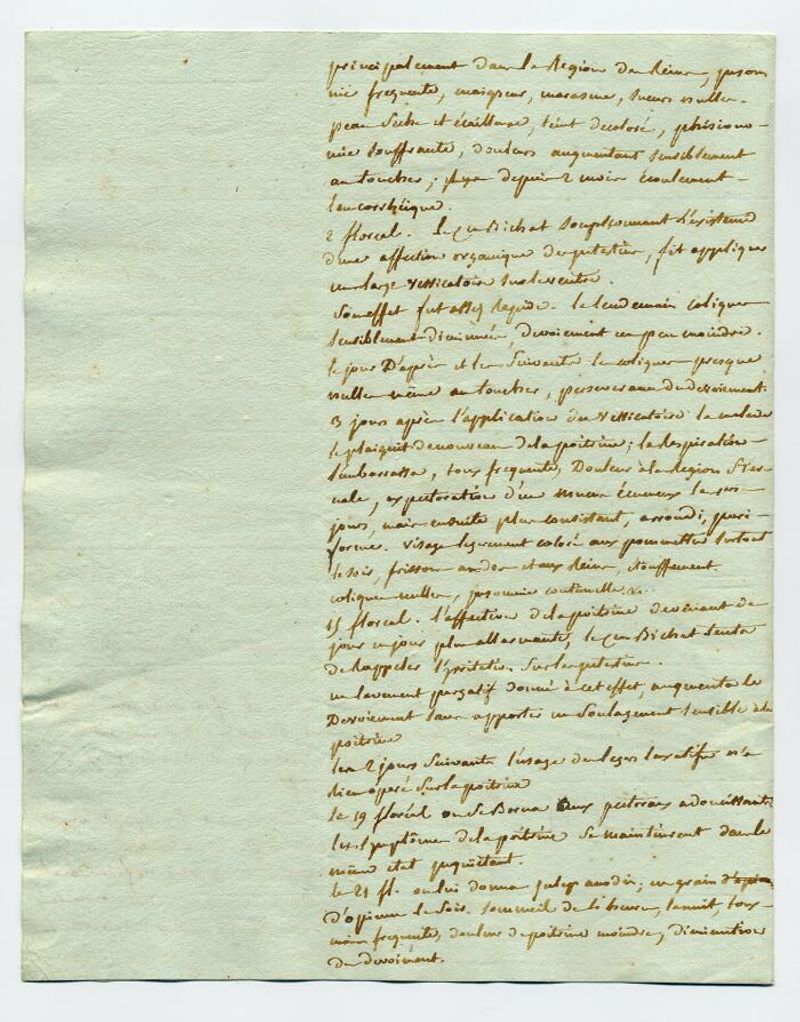 principalement dans la Region des Reins, insom
nie frequente, maigreur, marasme, sueurs nulles.
peau seche et écailleuse, teint decoloré, phisiono-
mie souffrante, douleurs augmentant sensiblement
au toucher; depuis 2 mois écoulement
leucorrhéique.
2 floréal. le Cen Bichat soupçonnant l'existence
d'une affection organique des intestins, fit appliquer
un large vessicatoire sur le ventre.
Son effet fut assez Rapide. le lendemain coliques
sensiblement diminuées, devoiement un peu moindre.
le jour D'après et les Suivants les coliques presque
nulles même au toucher, perseverance du devoiement.
3 jours après l'application du vessicatoire la malade
se plaignit de nouveau de la poitrine; la Respiration
s'embarrassa, toux frequente, Douleur à la Region ster
nale, expectoration d'un mucus écumeux les 1ers
jours, mais ensuite plus consistant, arrondi, puri-
forme. Visage legerement coloré aux pommettes surtout
le soir, frisson au dos et aux Reins, étouffement.
coliques nulles, insomnie continuelle &c.
15 floreal. l'affection de la poitrine devenant de
jour en jour plus allarmante, le Cen Bichat tenta
de Rappeler l'irritation sur les intestins.
un lavement purgatif donné à cet effet, augmenta le
Devoiement sans apporter un soulagement sensible à la
poitrine
les 2 jours Suivants l'usage des legers laxatifs n'a
Rien opéré sur la poitrine
le 19 floréal on se Borna aux pectoraux adoucissants.
les symptômes de la poitrine se maintinrent dans le
même etat inquiétant.
le 21 fl. on lui donna julep anodin; un grain d'opium
d'opium le soir. sommeil de 6 heures, la nuit, toux
moins frequente, douleur de poitrine moindre, diminution
du devoiment.